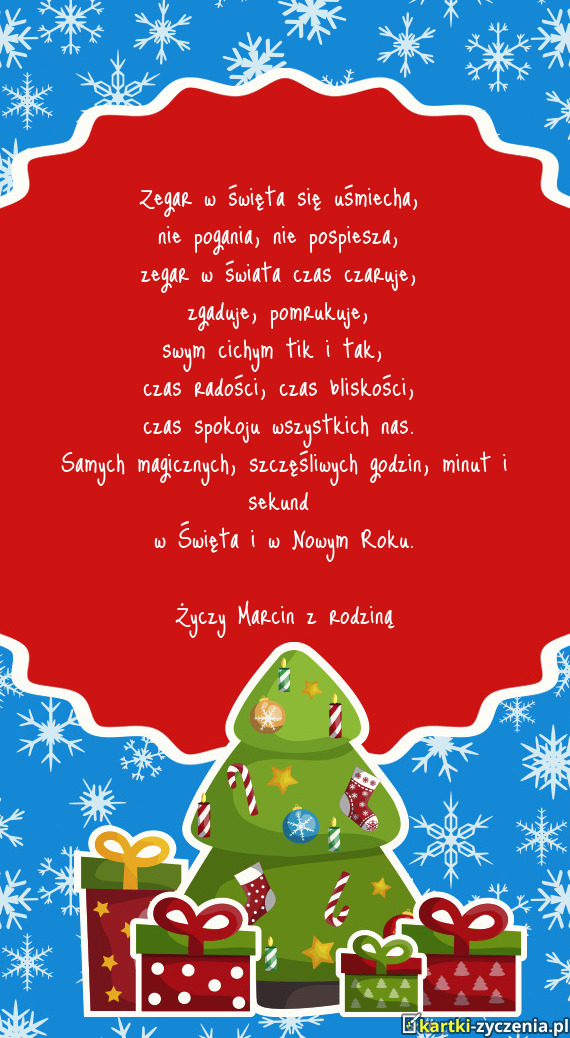 Zegar w święta się uśmiecha,
nie pogania, nie pospiesza,
zegar w świata czas czaruje,
zgaduje, pomrukuje,
swym cichym tik i tak,
czas radości, czas bliskości,
czas spokoju wszystkich nas.
Samych magicznych, szczęśliwych godzin, minut i
sekund
w Święta i w Nowym Roku.
Życzy Marcin z rodziną
kartki-zyczenia.pl